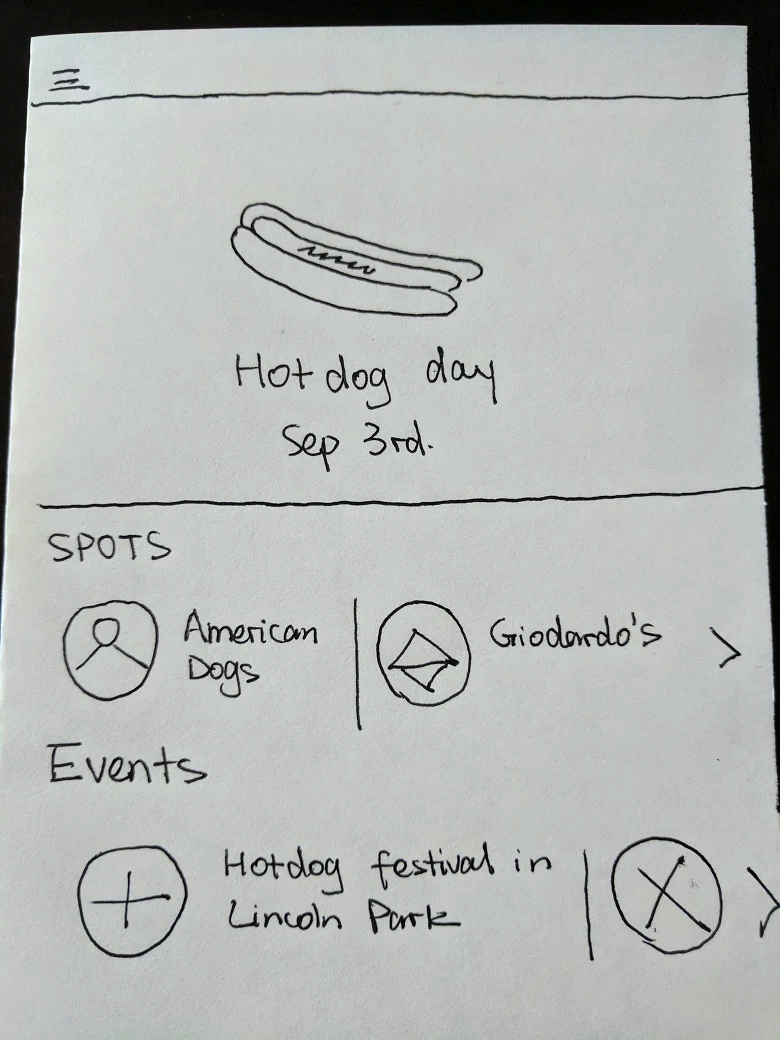 Hotdog day
Sep 3rd.
SPOTS
American
Dogs
Giodardo's
Events
Hotdog festival in
Lincoln Park